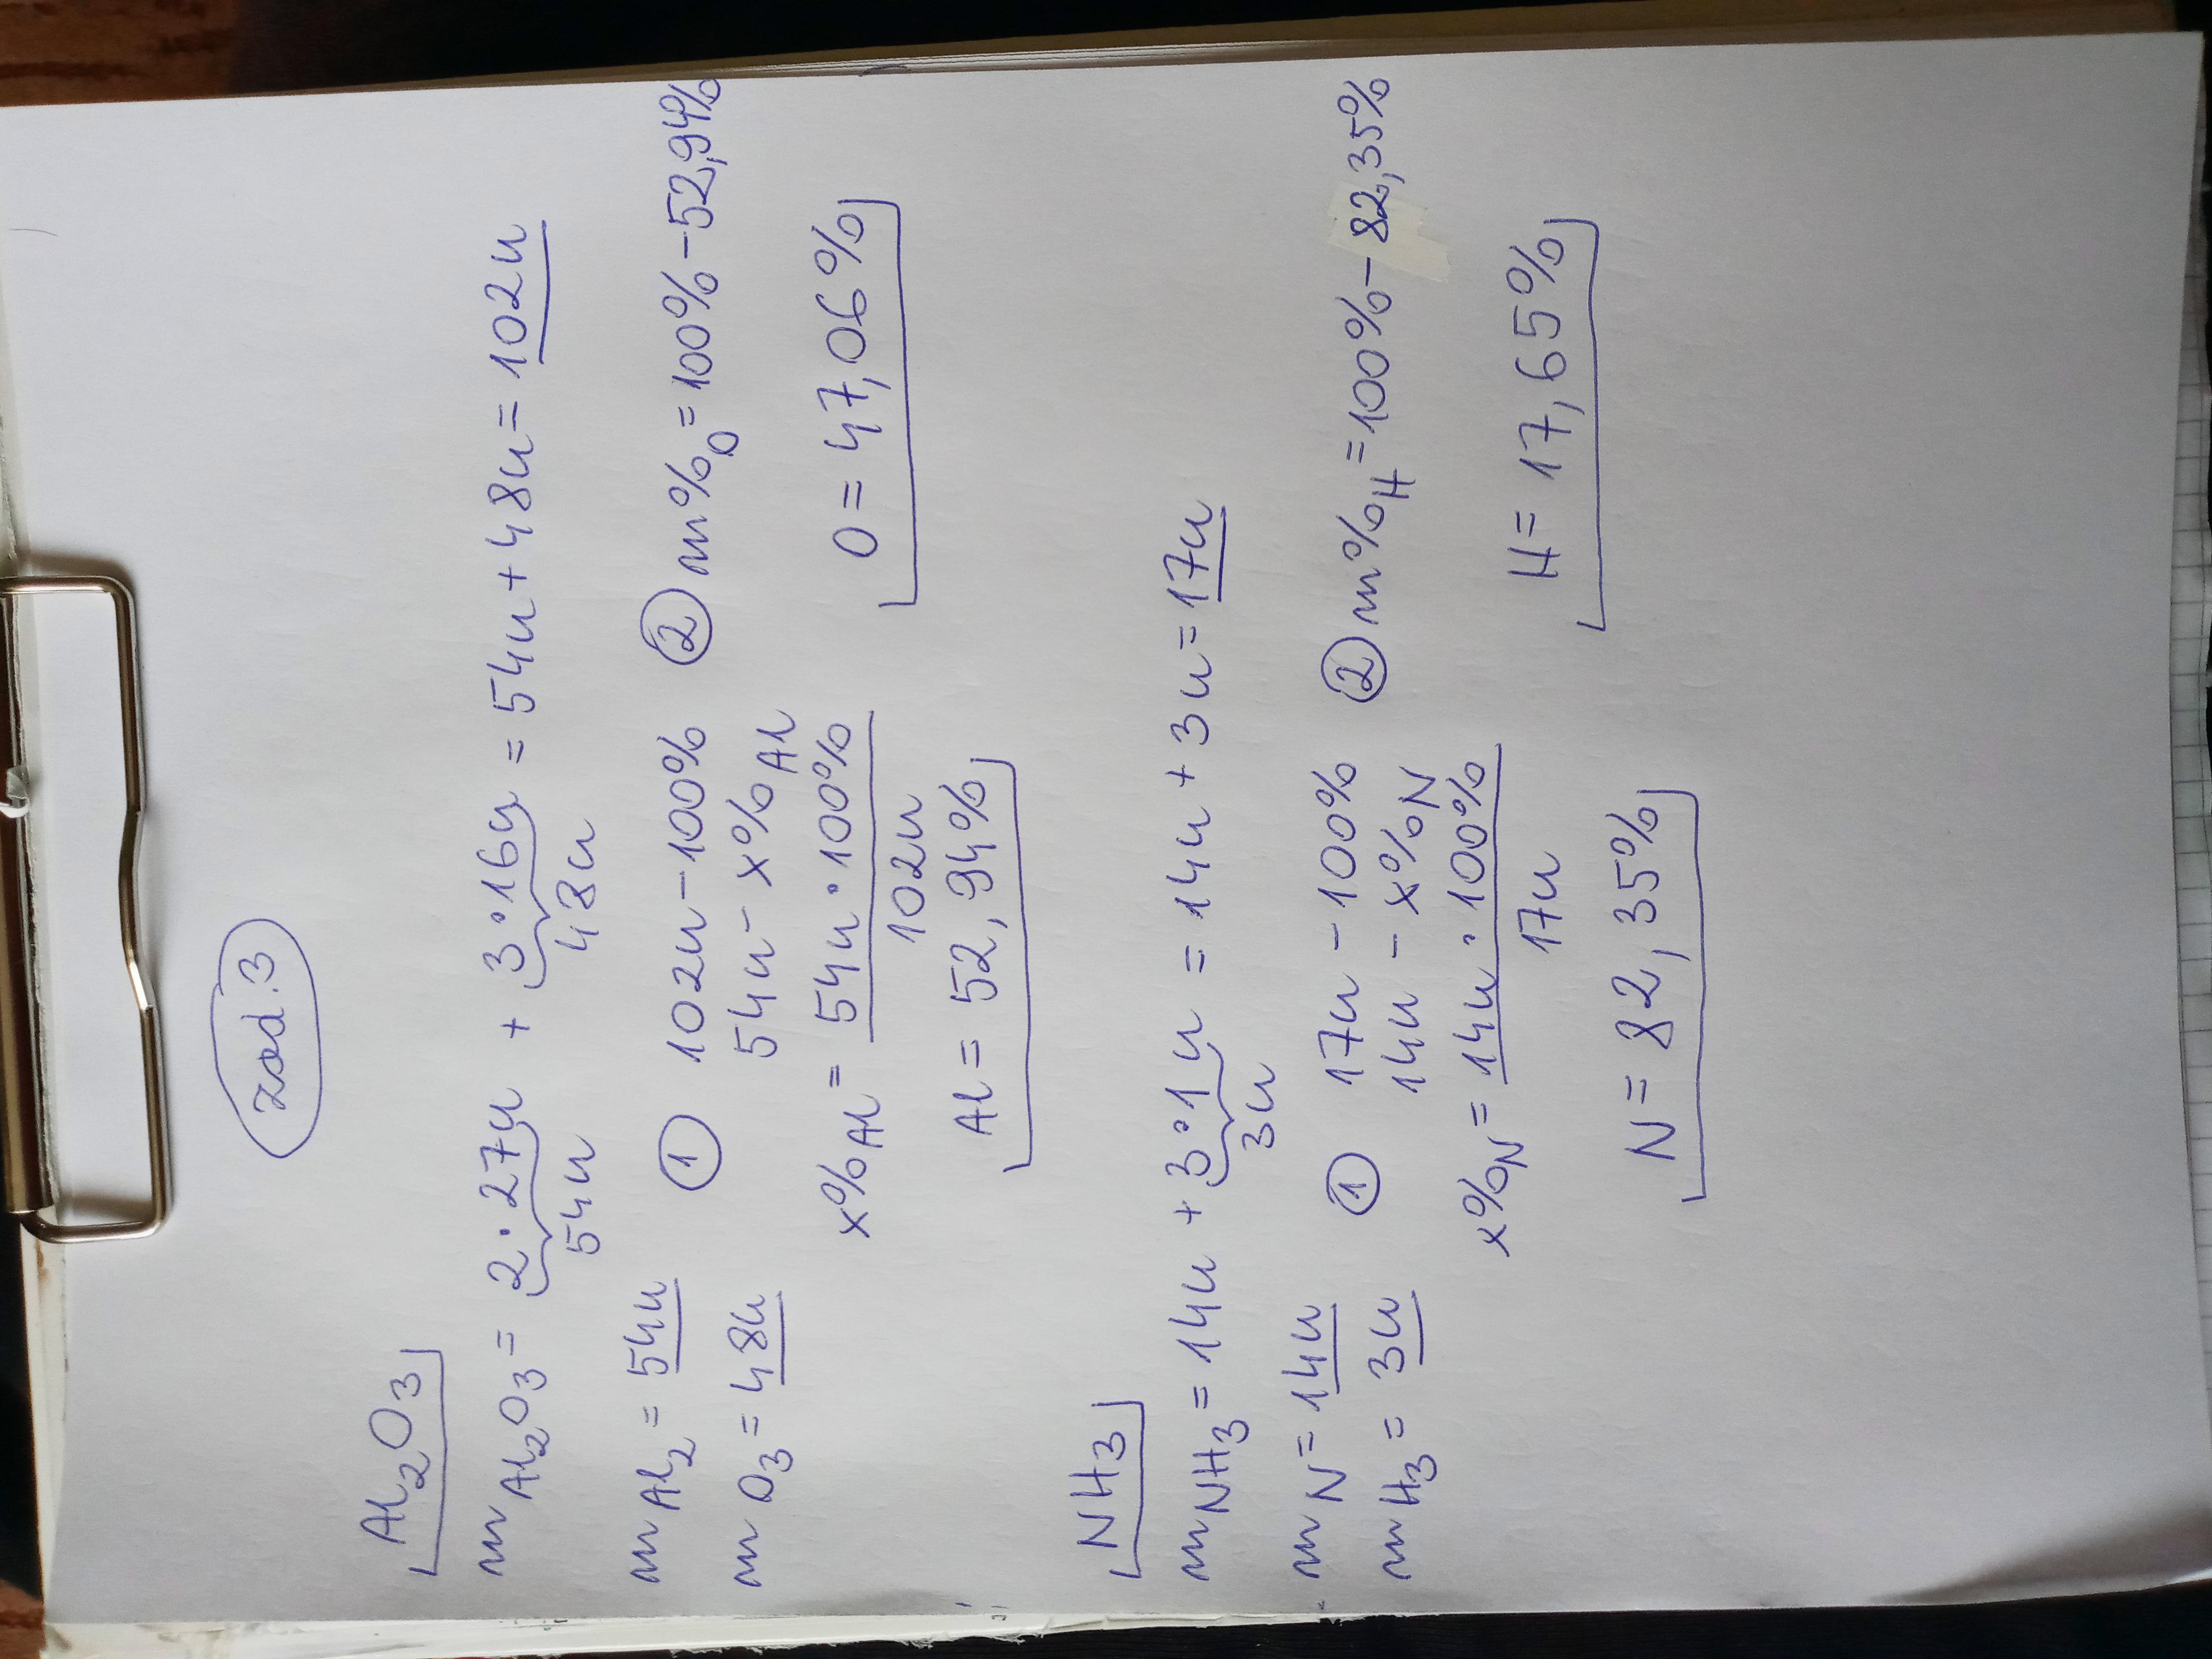 zad.3
Al₂O₃
m Al₂O₃ = 2·27u + 3·16u = 54u + 48u = 102u
54u 48u
m Al₂ = 54u
m O₃ = 48u
① 102u - 100%
54u - x% Al
x% Al = 54u·100% / 102u
Al = 52,94%
② m%O = 100% - 52,94%
O = 47,06%
NH₃
m NH₃ = 14u + 3·1u = 14u + 3u = 17u
3u
m N = 14u
m H₃ = 3u
① 17u - 100%
14u - x% N
x% N = 14u·100% / 17u
N = 82,35%
② m%H = 100% - 82,35%
H = 17,65%